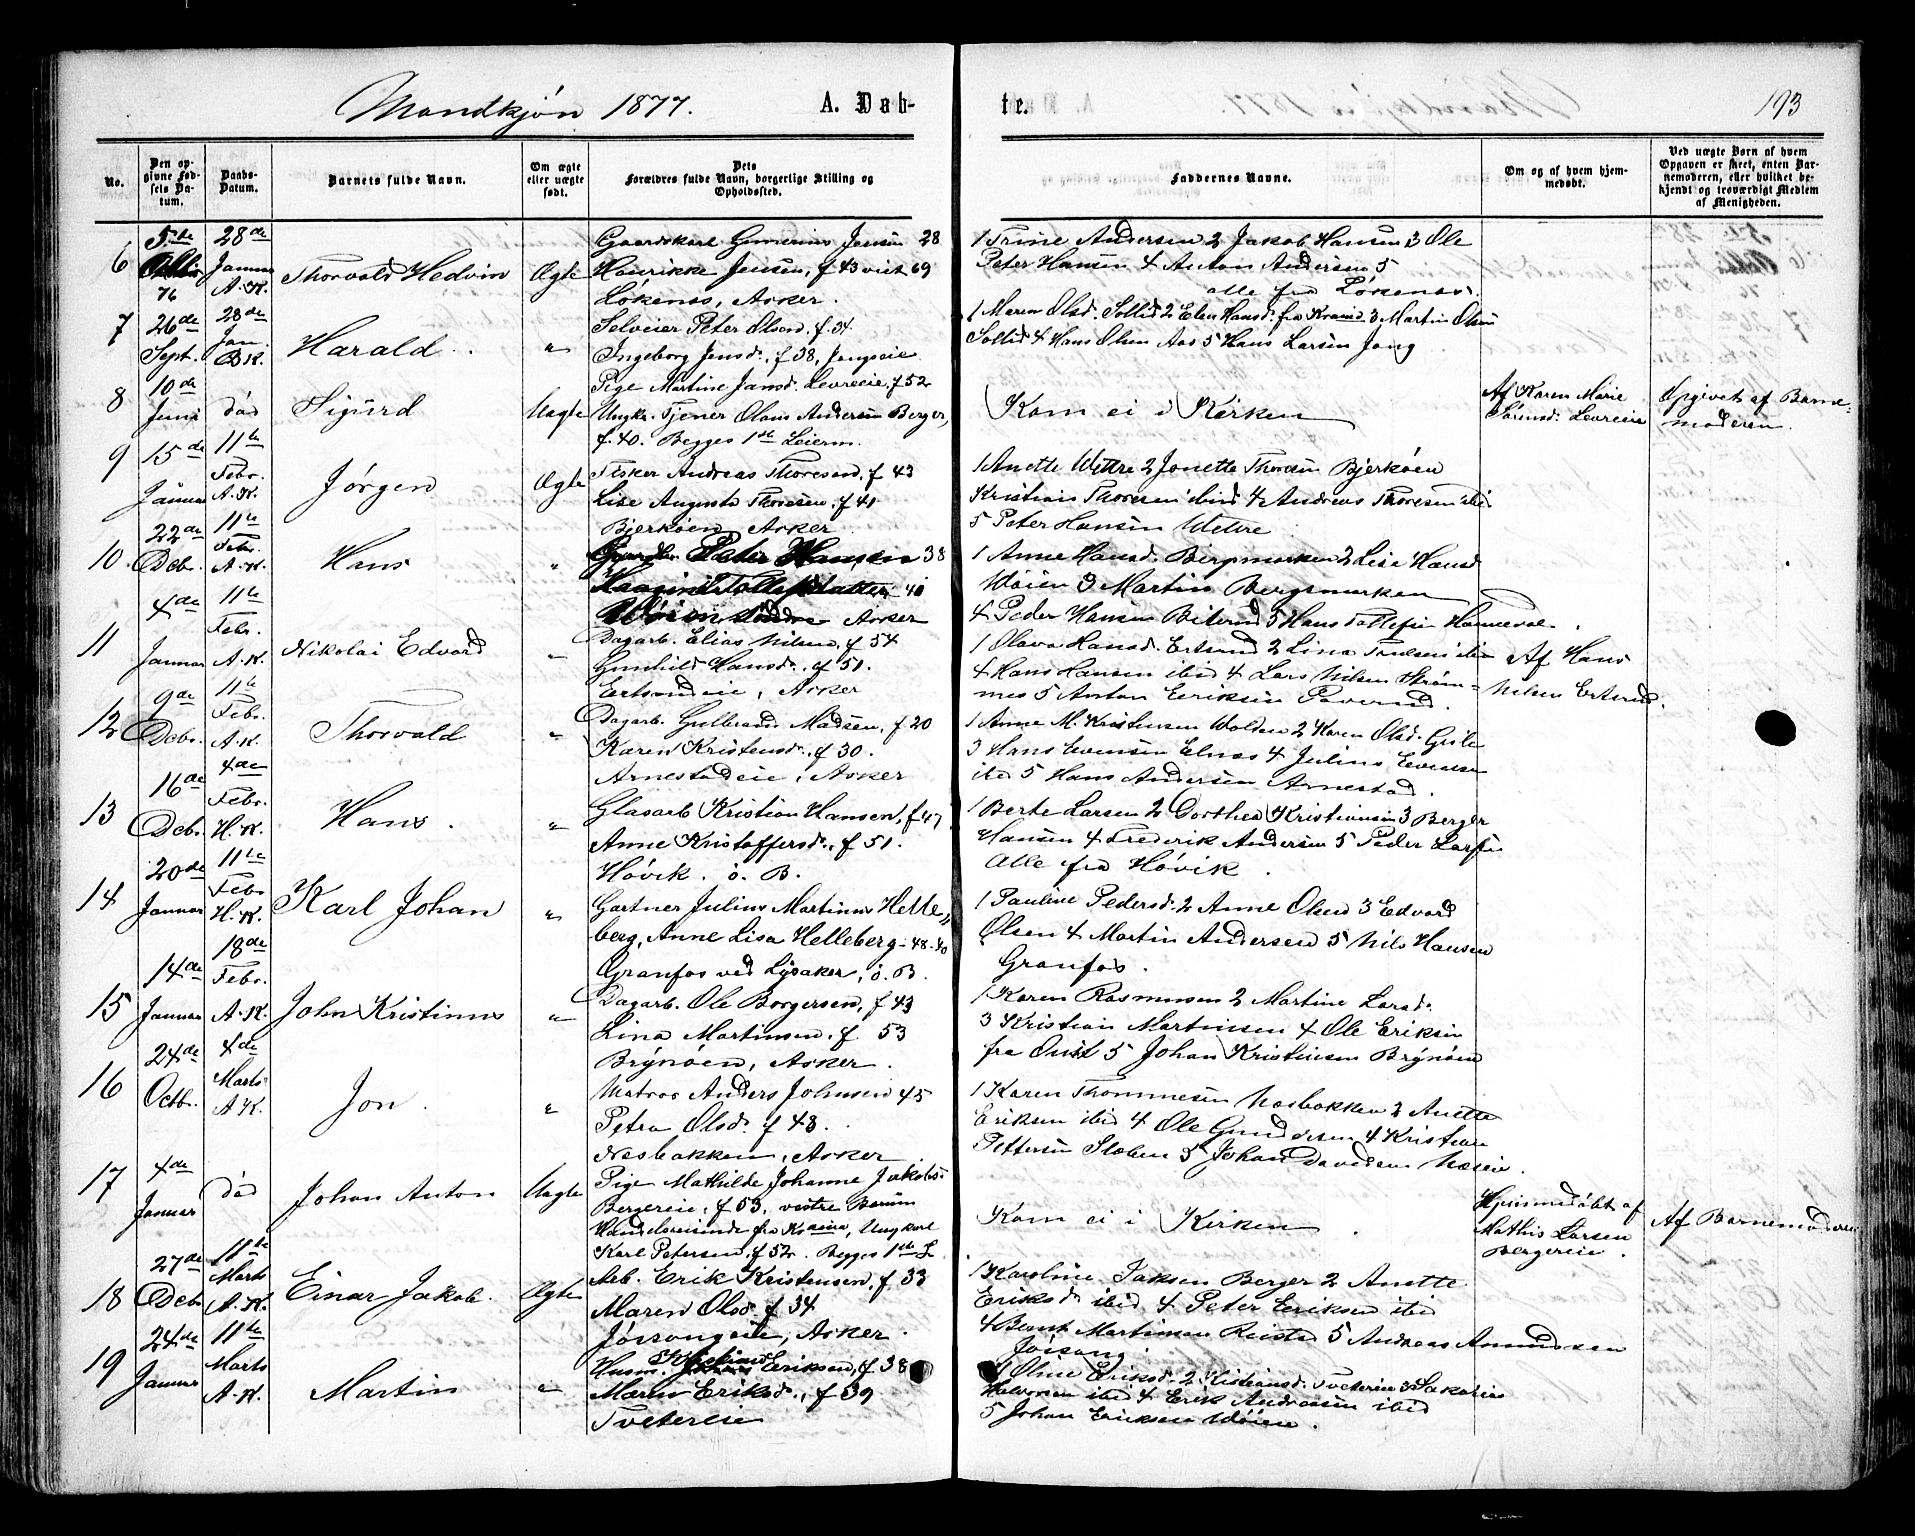 Mandkjøn 1877.
A. Dab-
te.
193
No.
Den opgivne Fødsels Datum.
Daabs-Datum.
Barnets fulde Navn.
Om ægte eller uægte født.
Dets Forældres fulde Navn, borgerlige Stilling og Opholdssted.
Faddernes Navne.
Om og af hvem hjemmedøbt.
Ved uægte Børn af hvem Opgaven er skeet, enten Barnemoderen, eller hvilket bekjendt og troværdigt Medlem af Menigheden.
6
5te
76
28de Januar A.K.
Thorvald Hedvin
Ægte
Gaardskarl Gunerius Jensen 28
Henrikke Jensen, f 43 viet 69
Løkenes, Asker.
1 Trine Andersen 2 Jakob Hansen 3 Ole
Peter Hansen 4 Anton Andersen 5
alle fra Løkenes.
7
26de Sept.
28de Jan. B.K.
Harald
"
Selveier Peter Olsen f. 34
Ingeborg Jensd., f 38, Jongseie
1 Maren Olsd. Sollid 2 Elen Hansd. fra 3 Martin Olsen
Sollid 4 Hans Olsen Aas 5 Hans Larsen Jong
8
10de Juni
død
Sigurd
Uægte
Pige Martine Jansd. Levreeie, f 52
Ungk. Tjener Olaus Andersen Berger,
f. 40. Begges 1ste Leierm.
Kom ei i Kirken
Af Karen Marie
Sørensd. Levreeie
Opgivet af Barne-
moderen.
9
15de Januar
11te Febr. A.K.
Jørgen
Ægte
Fisker Andreas Thoresen, f 43
Lise Augusta Thoresen, f 41
Bjerkøen, Asker
1 Anette Wettre 2 Jonette Thoresen Bjerkøen
Kristian Thoresen ibid 4 Andreas Thoresen ibid
5 Peter Hansen Wettre
10.
22de Debr.
11te Febr. A.K.
Hans
"
Peter Hansen 38
Tollefsdatter 40
Wøien, Asker
1 Anne Hansd. Bergsmarken 2 Lise Hansd
Wøien 3 Martin Bergsmarken
4 Peder Hansen Bilerud 5 Hans Tollefsen Hanneval.
11
4de Januar
11te Febr. A.K.
Nikolai Edvard
"
Dagarb. Elias Nilsen, f 54
Gunhild Hansd., f 51.
Ertsrudeie, Asker
1 Olava Hansd. Ertsrud 2 Lina Truelsen ibid
4 Hans Hansen ibid 4 Lars Nilsen Strøm-
mes 5 Anton Eriksen Paverud.
Af Hans
Nilsen Ertsrud.
12
9de Debr.
11te Febr. A.K.
Thorvald
"
Dagarb. Gulbrand Madsen, f 20
Karen Kristensd., f 30.
Arnestadeie, Asker
1 Anne M. Kristensen Wolden 2 Karen Olsd.
3 Hans Evensen Elnes 4 Julius Evensen
ibid 5 Hans Andersen Arnestad.
13
16de Debr.
4de Febr. H.K.
Hans.
"
Glasarb Kristian Hansen, f 47
Anne Kristoffersd., f 51.
Høvik. ø. B.
1 Berte Larsen 2 Dorthea Kristiansen 3 Berger
Hansen 4 Frederik Andersen 5 Peder Larsen
Alle fra Høvik.
14
20de Januar
11te Febr H.K.
Karl Johan
"
Gartner Julius Martinus Helle-
berg, Anne Lisa Helleberg - 48-40
Granfos ved Lysaker, ø. B.
1 Pauline Pedersd. 2 Anne Olsen 3 Edvard
Olsen 4 Martin Andersen 5 Nils Hansen
Granfos.
15
14de Januar
18de Febr. A.K.
John Kristinus
"
Dagarb. Ole Borgersen, f 43
Lina Martinsen. f 53
Brønøen, Asker.
1 Karen Rasmussen 2 Martine Larsd.
3 Kristian Martinsen 4 Ole Eriksen
fra 5 Johan Kristinsen Brønøen
16
24de Octb.
4de Marts A.K.
Jon.
"
Matros Anders Johnsen 45
Petra Olsd. f 48.
Nesbakken, Asker
1 Karen Thommesen Nesbakken 2 Anette
Eriksen ibid 4 Ole Gundersen 4 Kristian
Pettersen Slæben 5 Johan Davidsen Neseie.
17
4de Januar
død
Johan Anton
Uægte
Pige Mathilde Johanne Jakobs-
Bergereie, f 53, vestre Bærum
Handelsreisende fra, Ungkarl
Karl Petersen, f 52. Begges 1ste L
Kom ei i Kirken.
Hjemmedøbt af
Mathis Larsen
Bergereie.
Af Barnemoderen
18
27de Debr
11te Marts A.K.
Einar Jakob.
Ægte
Arb. Erik Kristensen, f. 33
Maren Olsd. f 34
Jørsongeie, Asker.
1 Karoline Berger 2 Anette
Eriksd. ibid 4 Peter Eriksen ibid
4 Bernt Martinsen Reistad 5 Andreas Amundsen
Jørsong.
19
24de Januar
11te Marts A.K.
Martin
"
Husm. Eriksen, f 38
Maren Eriksd., f 39
Tvetereie
1 Oline Eriksd. 2 Kristiansd. Tvetereie 3 Sakarias
Halvorsen ibid 4 Erik Andreasen ibid
5 Johan Eriksen Wøien.